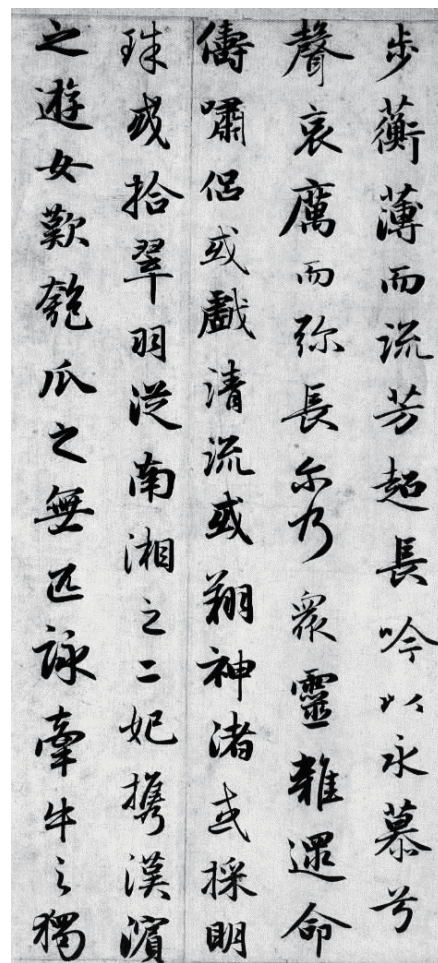 步蘅薄而流芳超長吟以永慕兮
聲哀厲而弥長尔乃衆靈雜遝命
儔嘯侣或戲清流或翔神渚或採明
珠或拾翠羽從南湘之二妃携漢濱
之遊女歎匏瓜之無匹詠牽牛之獨